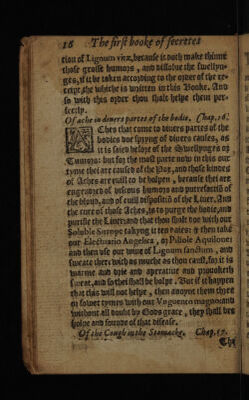 16 The first booke of secretes
tion of Lignum vitæ, because it doth make thinne
those grosse humors, and dissolue the swellyn-
ges, if it be taken according to the order of the re-
ceipt, the whiche is written in this Booke. And
so with this order thou shalt helpe them per-
fectly.
Of ache in diuers partes of the bodie. Chap. 16.
AChes that come to diuers partes of the
bodies doe spryng of diuers causes, as
it is saied before of the Swellynges or
Tumors: but for the most parte now in this our
tyme thei are caused of the Pox, and those kindes
of Aches are euill to be holpen, because thei are
engendred of viscous humors and putrefactiō of
the bloud, and of euill dispositiō of the Liuer. And
the cure of those Aches, is to purge the bodie, and
purifie the Liuer: and that thou shalt doe with our
Soluble Syrupe takyng it ten daies: & then take
our Electuario Angelica, or Pillole Aquilone:
and then vse our wine of Lignum sanctum, and
sweate therewith as muche as thou canst, for it is
warme and drie and operatiue and prouoketh
sweat, and so thei shall be holpe. But if it happen
that this will not helpe, then anoynt them three
or fower tymes with our Vnguento magno: and
without all doubt by Gods grace, they shall bee
holpe and secured of that disease.
Of the Cough in the Stomacke. Chap. 17.
The